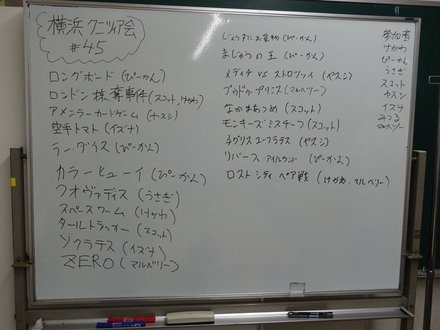 横浜クニツィア会
#45
ロングボード (ぴーかん)
ロンドン 捺奪事件 (スコット, けがわ)
アメンラーカードゲーム (ヤスシ)
空手トマト (イズナ)
ラー・ダイス (ぴーかん)
カラーヒューイ (ぴーかん)
クオヴァディス (うさぎ)
スペースワーム (けがわ)
タールトラッカー (スコット)
ソクラテス (イズナ)
ZERO (マルベリー)
じょうずにお買物 (ぴーかん)
まじゅつの王 (ぴーかん)
メディチ VS ストロッツィ (ヤスシ)
ブードゥープリンス (マルベリー)
なかまあつめ (スコット)
モンキーズミスチーフ (スコット)
チグリスユーフラテス (ヤスシ)
リバース アイルランド (ぴーかん)
ロストシティ ペア戦 (けがわ, マルベリー)
参加者
けがわ
ぴーかん
うさぎ
スコット
ヤスシ
イズナ
みつる
マルベリー